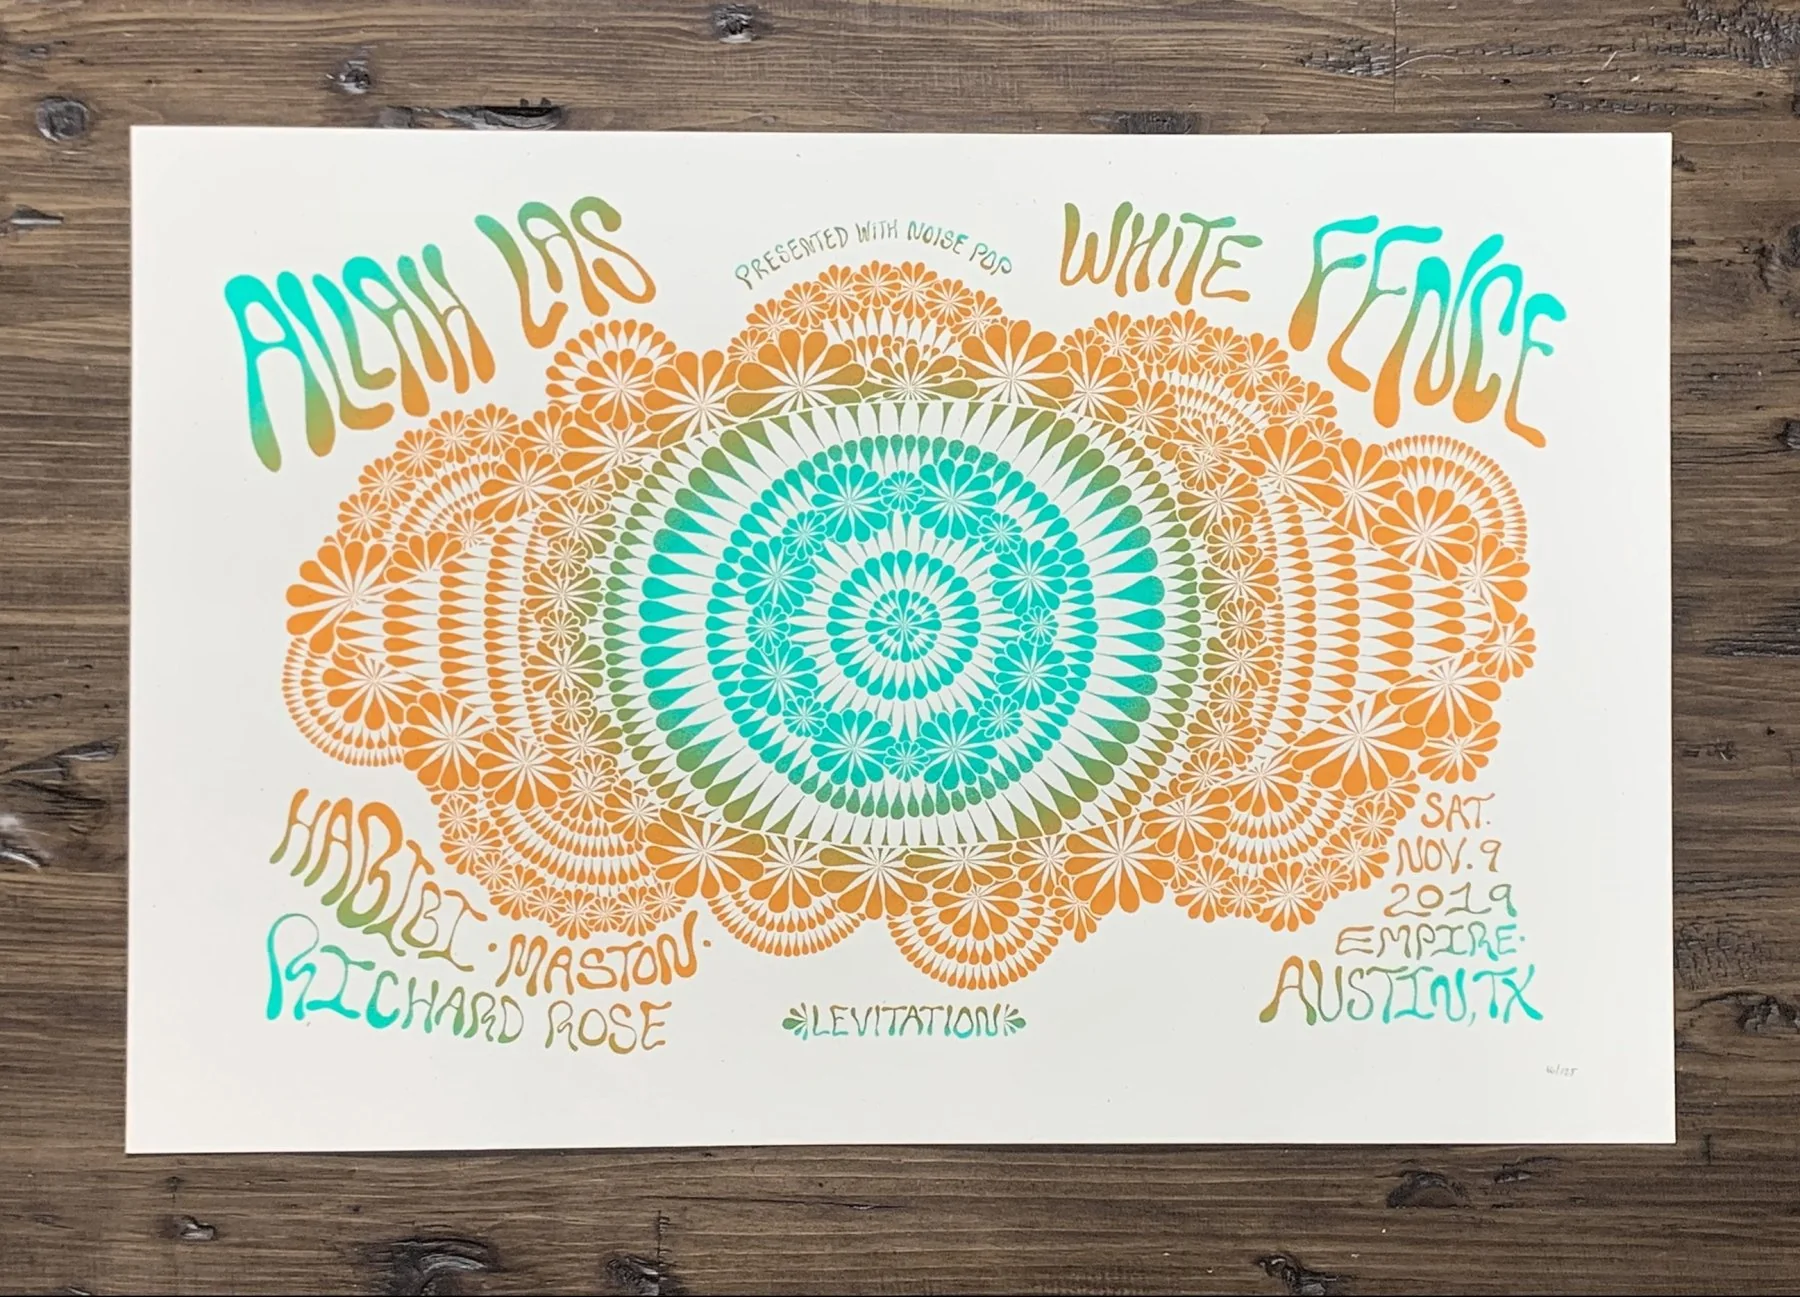 ALLAH LAS
PRESENTED WITH NOISE POP
WHITE FENCE
HABIBI · MASTON ·
RICHARD ROSE
LEVITATION
SAT.
NOV. 9
2019
EMPIRE ·
AUSTIN, TX